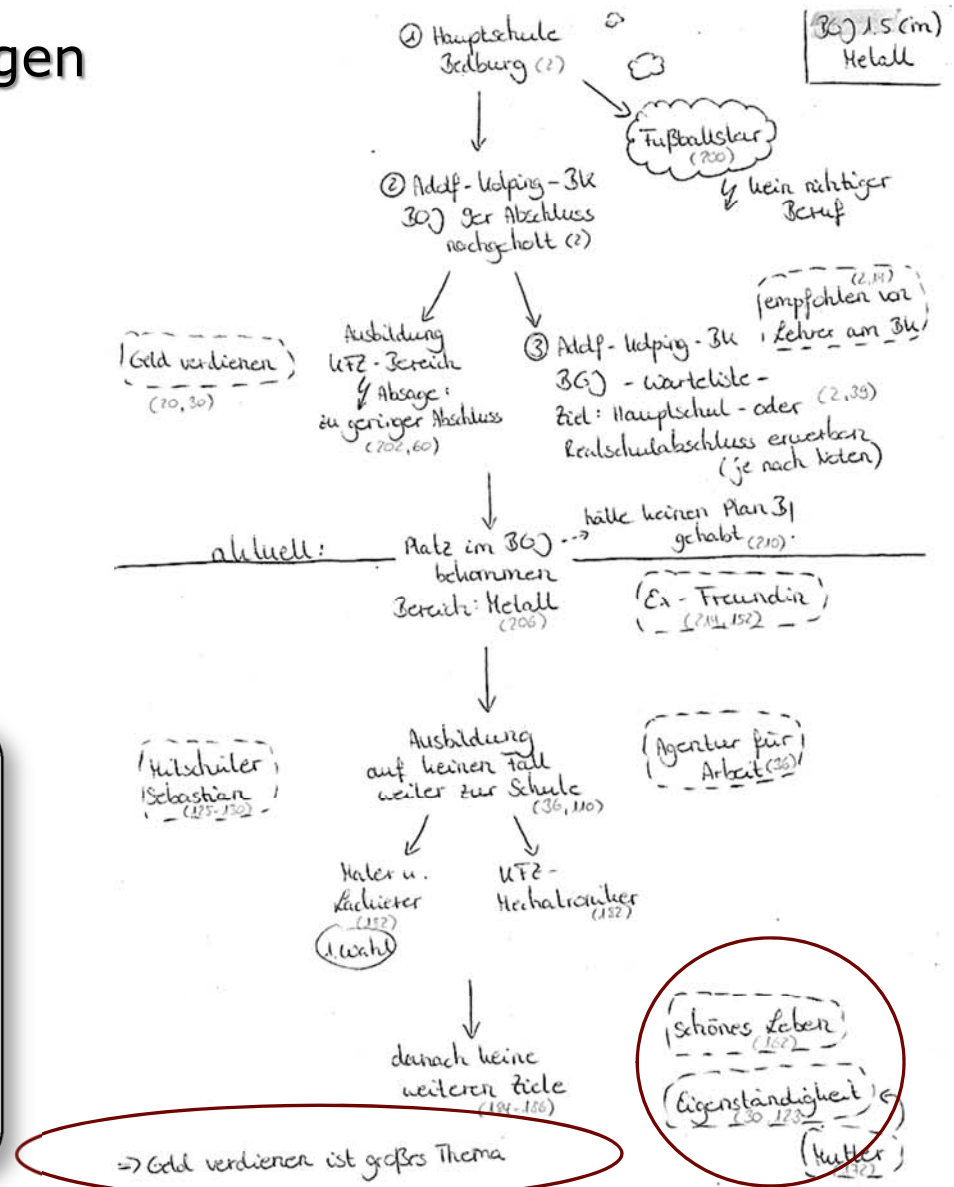 gen
① Hauptschule
Bedburg (2)
BGJ 1.5 (m)
Metall
Fußballstar
(200)
kein richtiger
Beruf
② Adolf-Kolping-BK
BOJ 9er Abschluss
nachgeholt (2)
Geld verdienen
(20,30)
Ausbildung
KFZ-Bereich
Absage:
zu geringer Abschluss
(202,60)
③ Adolf-Kolping-BK
BGJ - Warteliste -
Ziel: Hauptschul- oder (2,39)
Realschulabschluss erwerben
(je nach Noten)
empfohlen von
Lehrer am BK
aktuell:
Platz im BGJ
bekommen
Bereich: Metall
(206)
hätte keinen Plan B
gehabt (210).
Ex-Freundin
(214,152)
Mitschüler
Sebastian
(125-130)
Ausbildung
auf keinen Fall
weiter zur Schule
(36,110)
Agentur für
Arbeit (36)
Maler u.
Lackierer
(182)
1. Wahl
KFZ-
Mechatroniker
(182)
danach keine
weiteren Ziele
(184-186)
schönes Leben
(162)
Eigenständigkeit
(30,123)
Mutter
(172)
=> Geld verdienen ist großes Thema